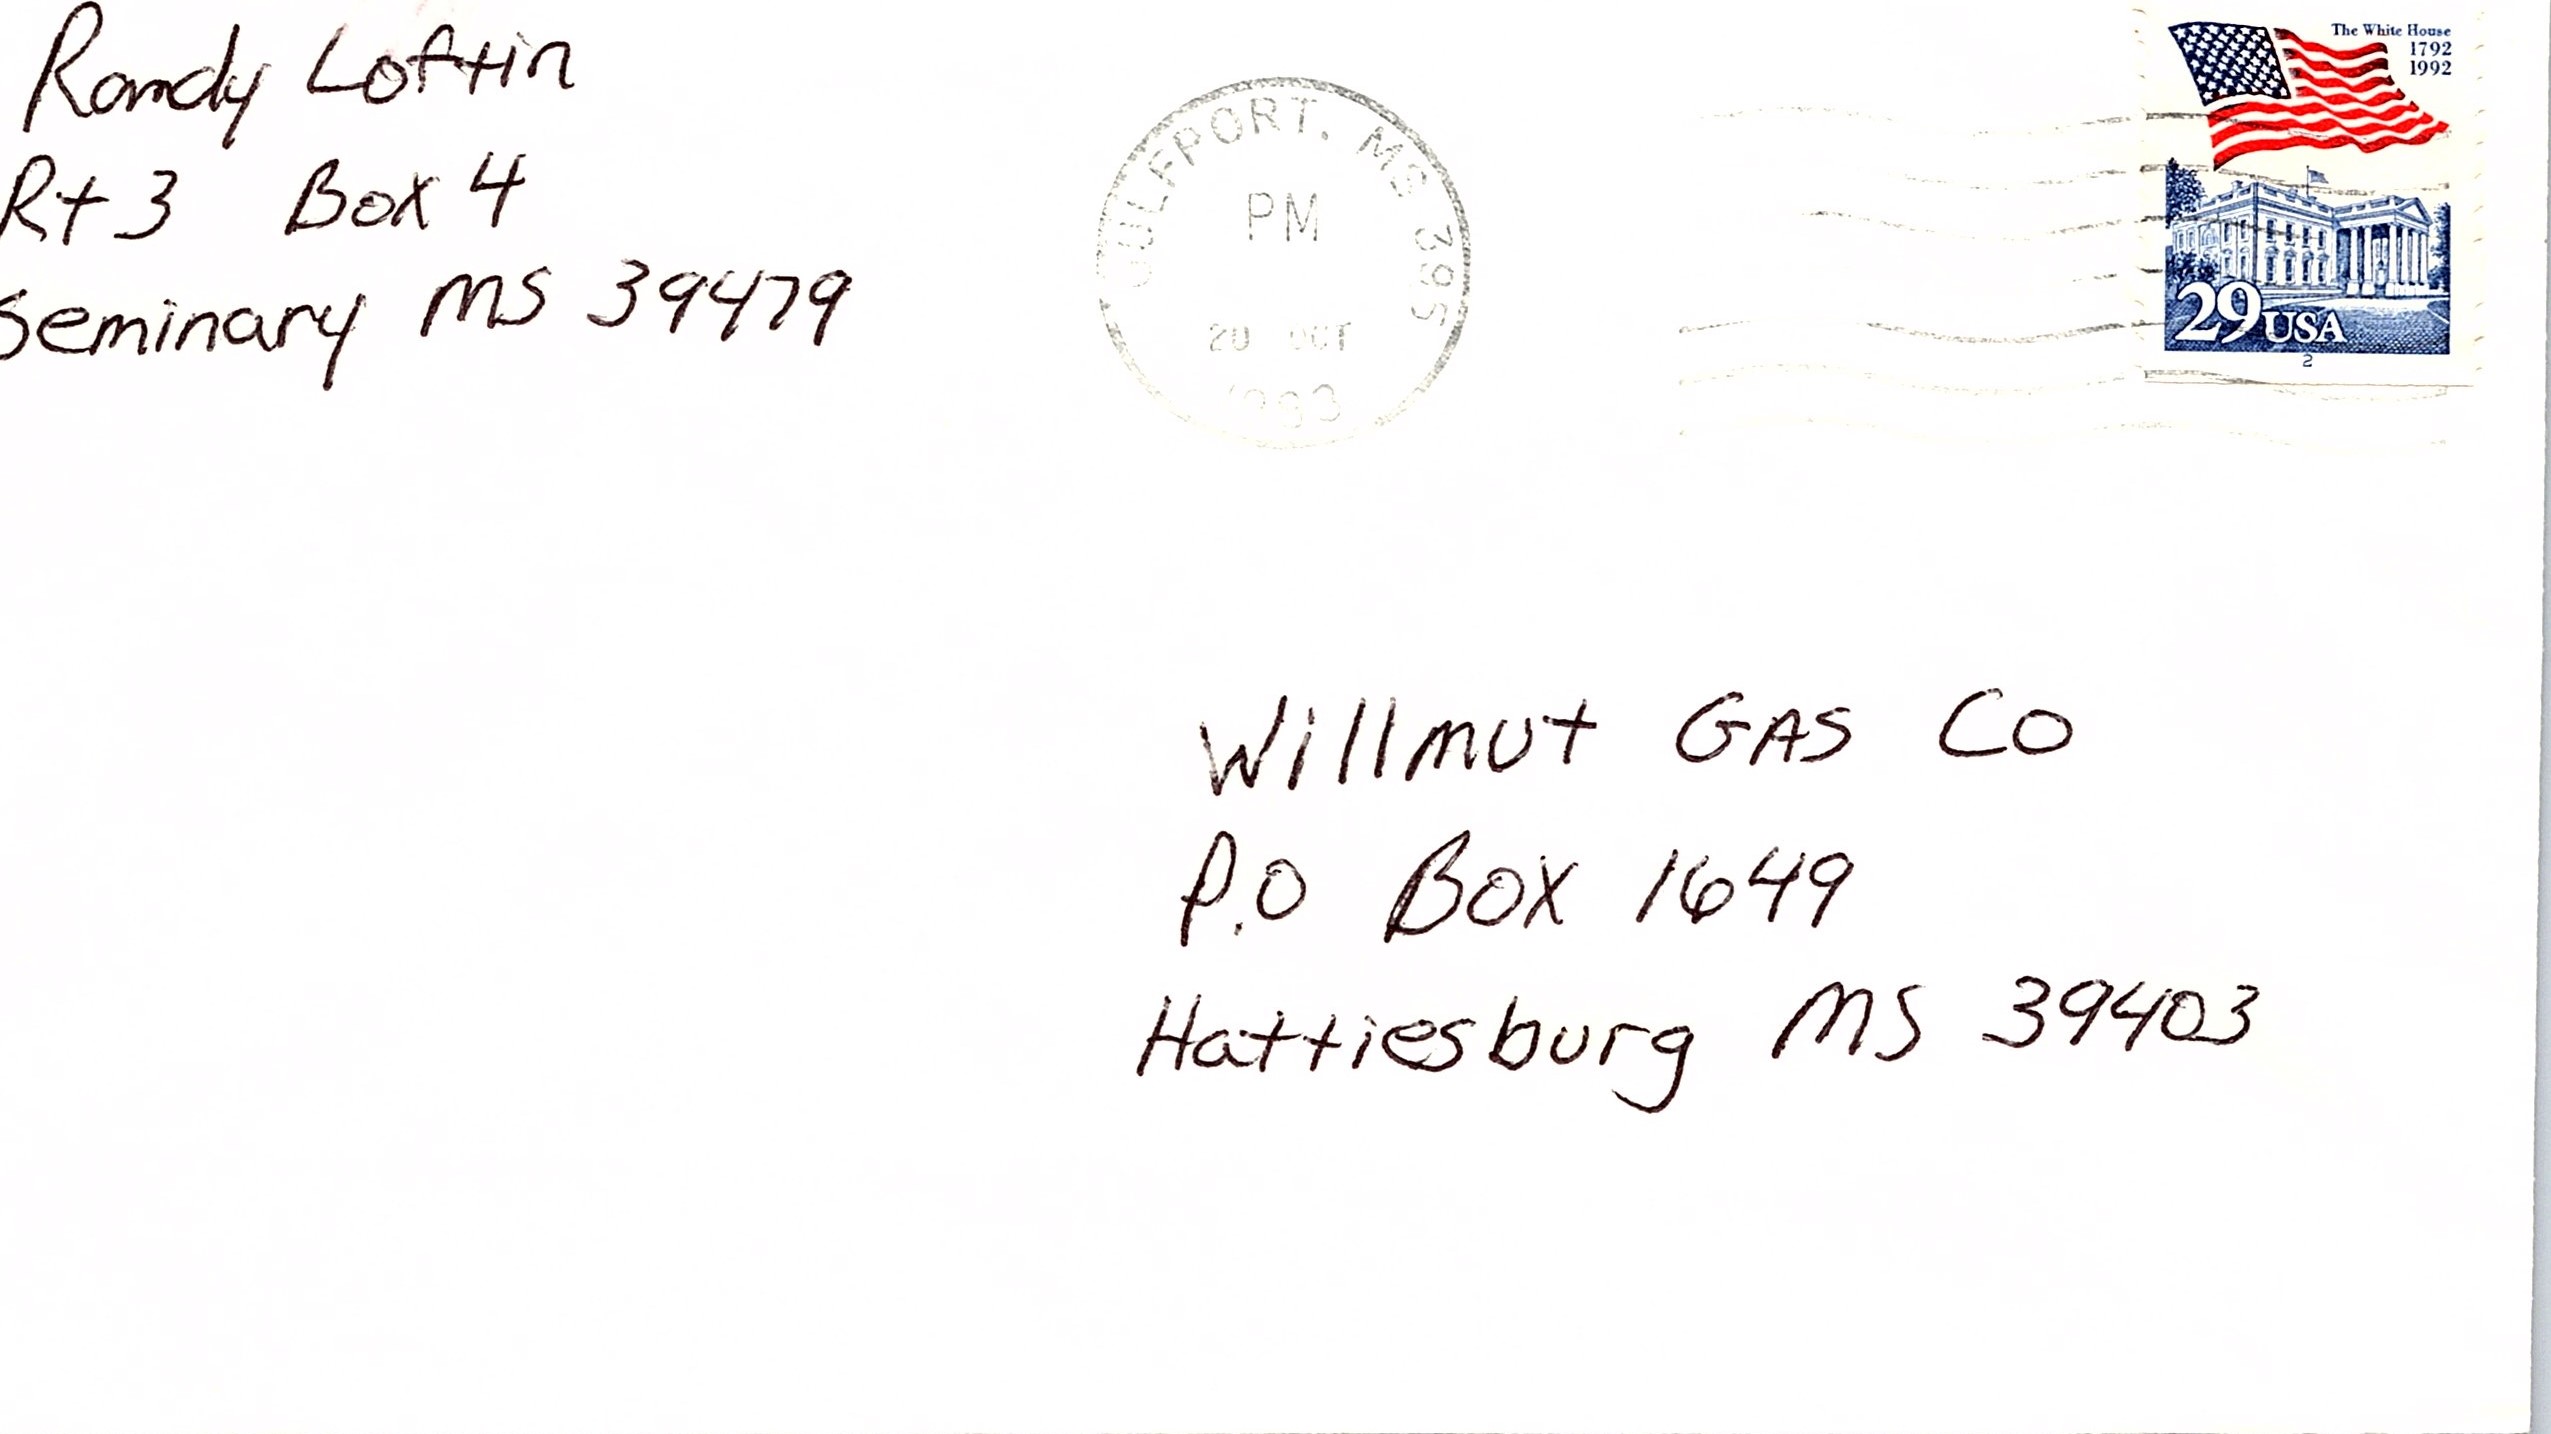 Randy Loftin
Rt 3 Box 4
Seminary MS 39479
GULFPORT, MS 395
PM
20 OCT
1993
The White House
1792
1992
29 USA
2
Willmut GAS CO
P.O BOX 1649
Hattiesburg MS 39403